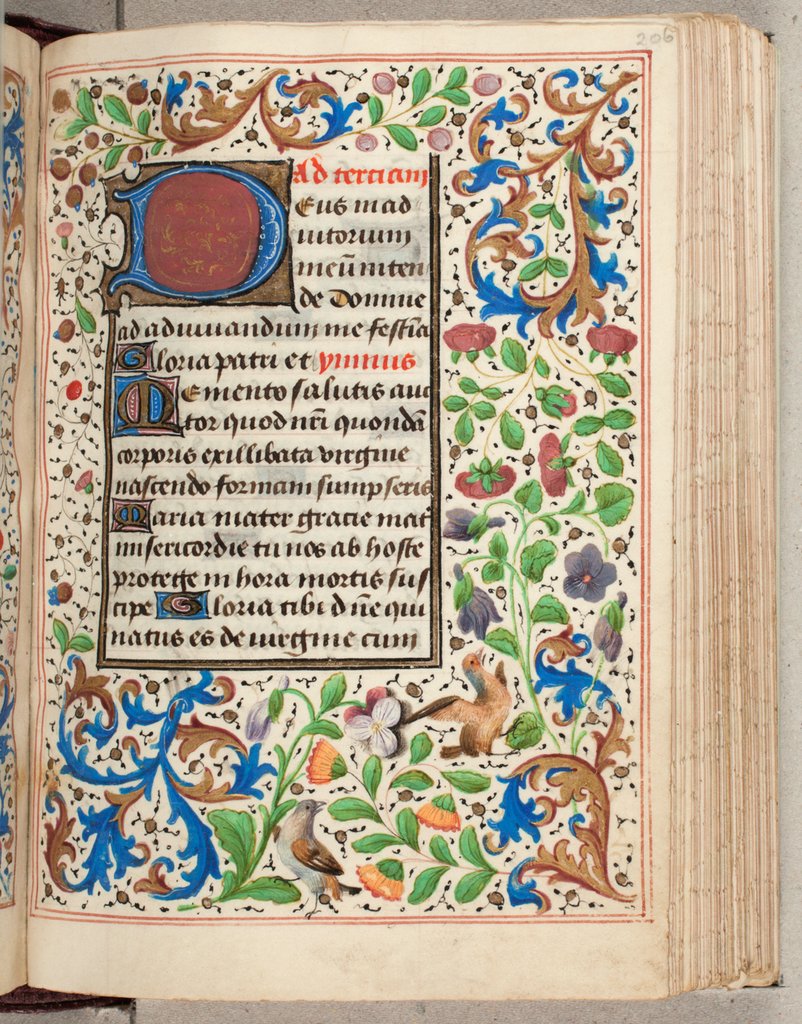 206
Ad terciam
Deus in ad
iutorium
meū inten
de Domine
ad adiuuandum me festīa
Gloria patri et ymnus
Memento salutis auc
tor quod nr̄i quondā
corporis ex illibata virgine
nascendo formam sumpseris
Maria mater gracie mat᷑
misericordie tu nos ab hoste
protege in hora mortis sus
cipe Gloria tibi dn̄e qui
natus es de uirgine cum